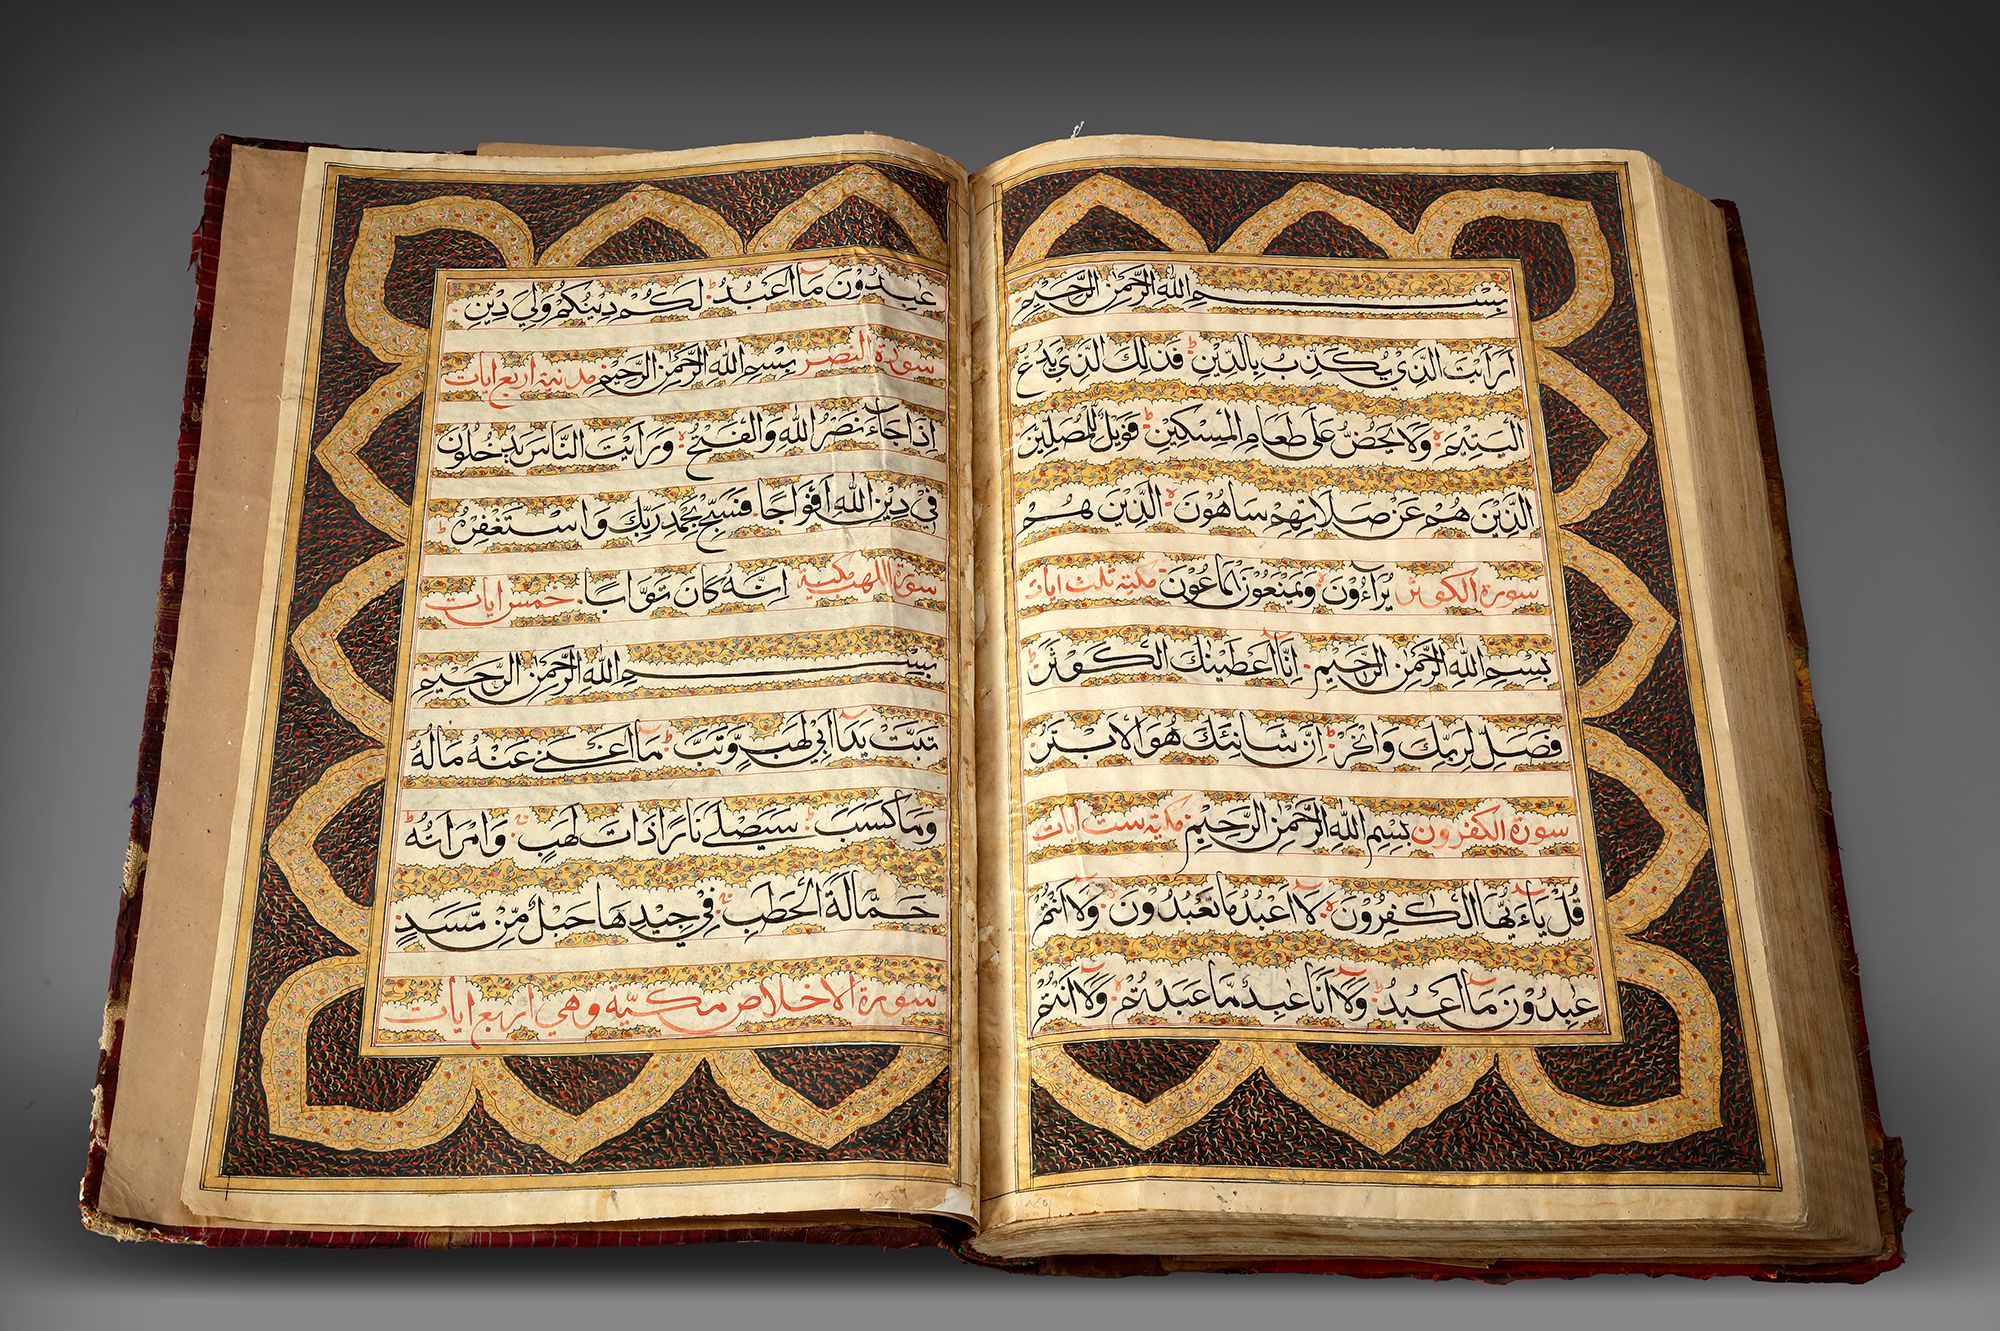 بِسْمِ اللهِ الرَّحْمٰنِ الرَّحِيْمِ
اَرَاَيْتَ الَّذِيْ يُكَذِّبُ بِالدِّيْنِ ط فَذٰلِكَ الَّذِيْ يَدُعُّ
الْيَتِيْمَ ۙ وَلَا يَحُضُّ عَلٰى طَعَامِ الْمِسْكِيْنِ ط فَوَيْلٌ لِّلْمُصَلِّيْنَ ۙ
الَّذِيْنَ هُمْ عَنْ صَلَاتِهِمْ سَاهُوْنَ ۙ الَّذِيْنَ هُمْ
سورة الكوثر يُرَآءُوْنَ ۙ وَيَمْنَعُوْنَ الْمَاعُوْنَ مكية ثلث ايات
بِسْمِ اللهِ الرَّحْمٰنِ الرَّحِيْمِ اِنَّآ اَعْطَيْنٰكَ الْكَوْثَرَ ط
فَصَلِّ لِرَبِّكَ وَانْحَرْ ط اِنَّ شَانِئَكَ هُوَ الْاَبْتَرُ
سورة الكفرون بِسْمِ اللهِ الرَّحْمٰنِ الرَّحِيْمِ مكية ست ايات
قُلْ يَآءَيُّهَا الْكٰفِرُوْنَ ۙ لَآ اَعْبُدُ مَا تَعْبُدُوْنَ ۙ وَلَآ اَنْتُمْ
عٰبِدُوْنَ مَآ اَعْبُدُ ط وَلَآ اَنَا عَابِدٌ مَّا عَبَدْتُّمْ ۙ وَلَآ اَنْتُمْ
عٰبِدُوْنَ مَآ اَعْبُدُ ط لَكُمْ دِيْنُكُمْ وَلِيَ دِيْنِ
سورة النصر بِسْمِ اللهِ الرَّحْمٰنِ الرَّحِيْمِ مدنية اربع ايات
اِذَا جَآءَ نَصْرُ اللهِ وَالْفَتْحُ ۙ وَرَاَيْتَ النَّاسَ يَدْخُلُوْنَ
فِيْ دِيْنِ اللهِ اَفْوَاجًا فَسَبِّحْ بِحَمْدِ رَبِّكَ وَاسْتَغْفِرْهُ ط
سورة اللهب مكية اِنَّهٗ كَانَ تَوَّابًا خمس ايات
بِسْمِ اللهِ الرَّحْمٰنِ الرَّحِيْمِ
تَبَّتْ يَدَآ اَبِيْ لَهَبٍ وَّتَبَّ ط مَآ اَغْنٰى عَنْهُ مَالُهٗ
وَمَا كَسَبَ ط سَيَصْلٰى نَارًا ذَاتَ لَهَبٍ وَامْرَاَتُهٗ ط
حَمَّالَةَ الْحَطَبِ فِيْ جِيْدِهَا حَبْلٌ مِّنْ مَّسَدٍ
سورة الاخلاص مكية وهي اربع ايات